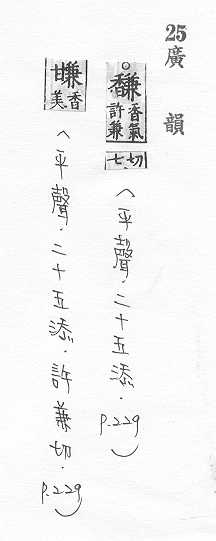 25 廣韻
○馦香氣許兼切七（平聲．二十五添．P.229）
香美（平聲．二十五添．許兼切．P.229）